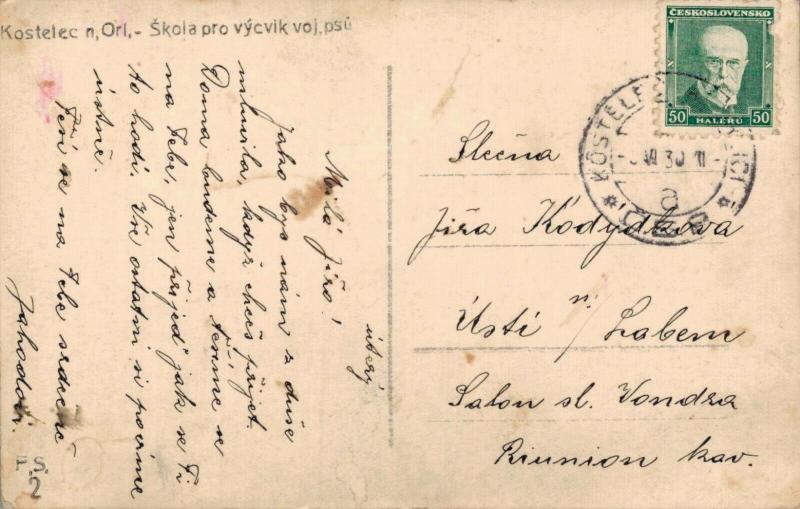 Kostelec n, Orl,- Škola pro výcvik voj, psů
úterý
Milá Jiřo!
Jako bys nám z duše
mluvila, když chceš přijet.
Doma budeme a těšíme se
na Tebe, jen přijeď jak se Ti
to hodí. Vše ostatní si povíme
ústně.
Těší se na Tebe srdečně
F.S.
2
ČESKOSLOVENSKO
50 HALÉŘŮ 50
Slečna
Jiřa Kodydkova
Ústí n/Labem
Salon sl. Vondra
Riunion kav.